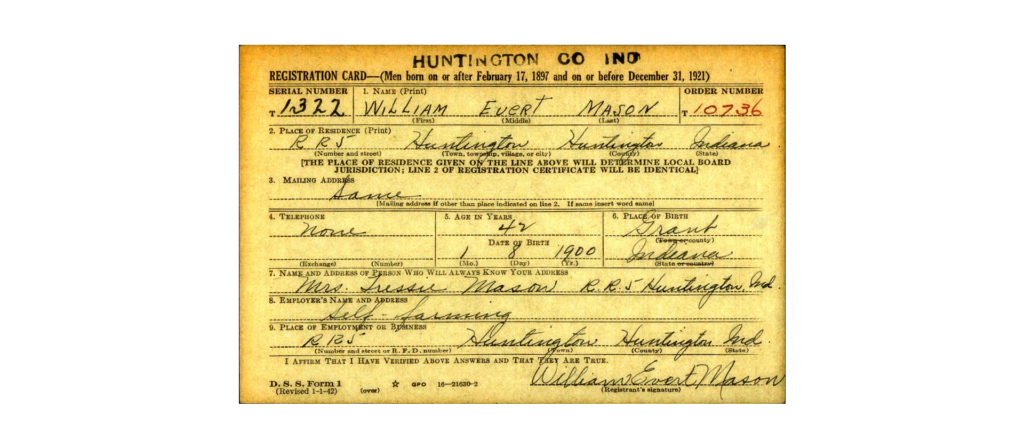 HUNTINGTON CO IND
REGISTRATION CARD—(Men born on or after February 17, 1897 and on or before December 31, 1921)
SERIAL NUMBER 1. NAME (Print) ORDER NUMBER
T 1322 WILLIAM EVERT MASON T 10736
(First) (Middle) (Last)
2. PLACE OF RESIDENCE (Print)
R R 5 Huntington Huntington Indiana
(Number and street) (Town, township, village, or city) (County) (State)
[THE PLACE OF RESIDENCE GIVEN ON THE LINE ABOVE WILL DETERMINE LOCAL BOARD
JURISDICTION; LINE 2 OF REGISTRATION CERTIFICATE WILL BE IDENTICAL]
3. MAILING ADDRESS
Same
(Mailing address if other than place indicated on line 2. If same insert word same)
4. TELEPHONE 5. AGE IN YEARS 6. PLACE OF BIRTH
None 42 Grant
DATE OF BIRTH (Town or county)
1 8 1900 Indiana
(Exchange) (Number) (Mo.) (Day) (Yr.) (State or country)
7. NAME AND ADDRESS OF PERSON WHO WILL ALWAYS KNOW YOUR ADDRESS
Mrs. Tressie Mason R.R.5 Huntington, Ind.
8. EMPLOYER'S NAME AND ADDRESS
Self-farming
9. PLACE OF EMPLOYMENT OR BUSINESS
R R 5 Huntington Huntington Ind.
(Number and street or R. F. D. number) (Town) (County) (State)
I AFFIRM THAT I HAVE VERIFIED ABOVE ANSWERS AND THAT THEY ARE TRUE.
William Evert Mason
D. S. S. Form 1 (Registrant's signature)
(Revised 1-1-42) (over) ☆ GPO 16—21630-2